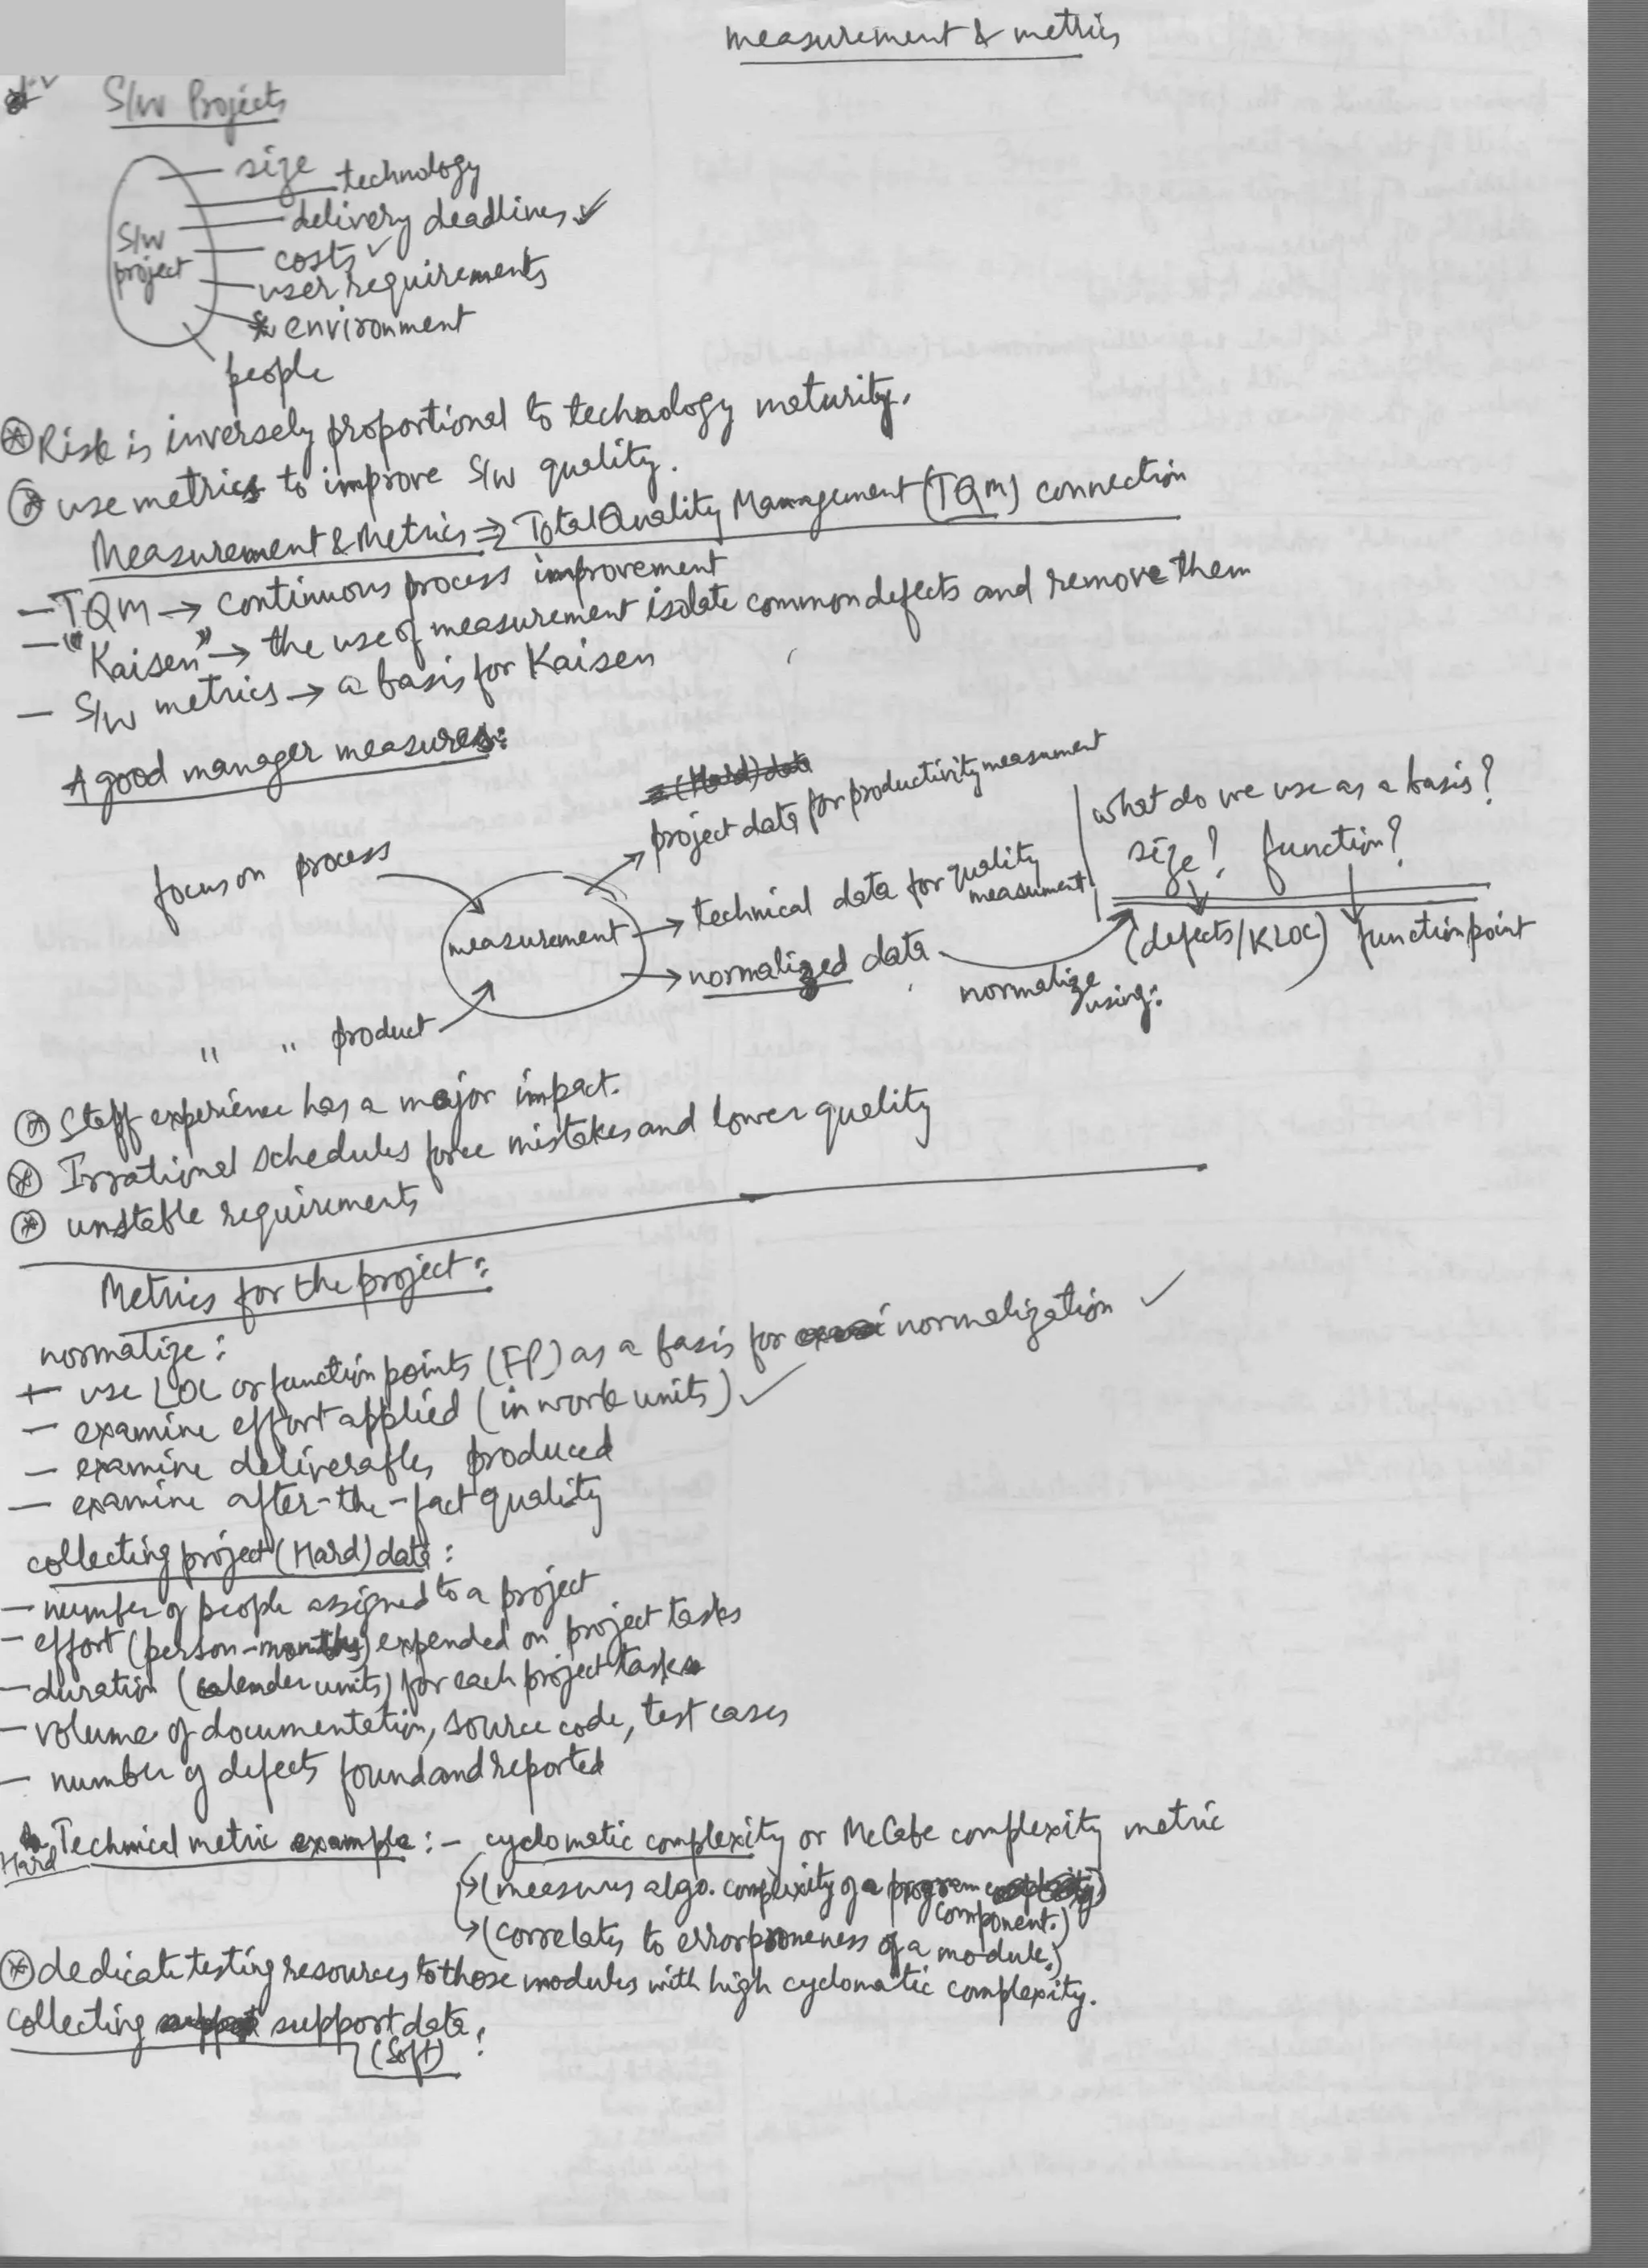 measurement & metrics
S/W Projects
S/W project
size
technology
delivery deadlines ✓
costs ✓
user requirements
* environment
people
⊛ Risk is inversely proportional to technology maturity.
⊛ use metrics to improve S/W quality.
Measurement & Metrics ⇒ Total Quality Management (TQM) connection
— TQM → continuous process improvement
— "Kaisen" → the use of measurement isolate common defects and remove them
— S/W metrics → a basis for Kaisen
A good manager measures:
(Hard) data
project data for productivity measurment
focus on process
measurement
→ technical data for quality measument
→ normalized data
normalize using:
what do we use as a basis?
size? function?
(defects/KLOC) function point
" " product
⊛ Staff experience has a major impact.
⊛ Irrational schedules force mistakes and lower quality
⊛ unstable requirements
Metrics for the project:
normalize:
+ use LOC or function points (FP) as a basis for normalization ✓
— examine effort applied (in work units) ✓
— examine deliverables produced
— examine after-the-fact quality
collecting project (Hard) data:
— number of people assigned to a project
— effort (person-months) expended on project tasks
— duration (calender units) for each project task
— volume of documentation, source code, test cases
— number of defects found and reported
Technical metric example: - cyclomatic complexity or McCabe complexity metric
Hard
→ (measures algo. complexity of a program component.)
→ (correlates to errorproneness of a module.)
⊛ dedicate testing resources to those modules with high cyclomatic complexity.
collecting support data:
(Soft)